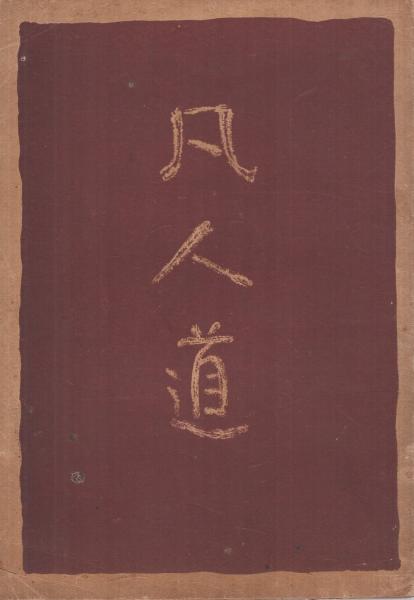 凡人道